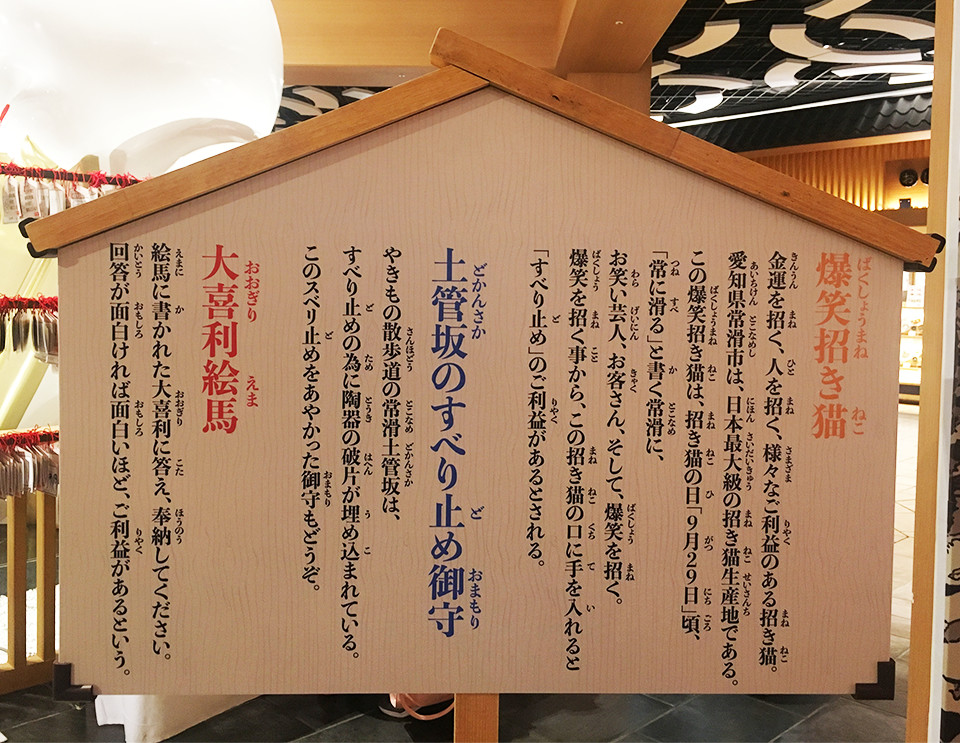 爆笑招き猫
金運を招く、人を招く、様々なご利益のある招き猫。
愛知県常滑市は、日本最大級の招き猫生産地である。
この爆笑招き猫は、招き猫の日「9月29日」頃、
「常に滑る」と書く常滑に、
お笑い芸人、お客さん、そして、爆笑を招く。
爆笑を招く事から、この招き猫の口に手を入れると
「すべり止め」のご利益があるとされる。
土管坂のすべり止め御守
やきもの散歩道の常滑土管坂は、
すべり止めの為に陶器の破片が埋め込まれている。
このスベリ止めをあやかった御守もどうぞ。
大喜利絵馬
絵馬に書かれた大喜利に答え、奉納してください。
回答が面白ければ面白いほど、ご利益があるという。